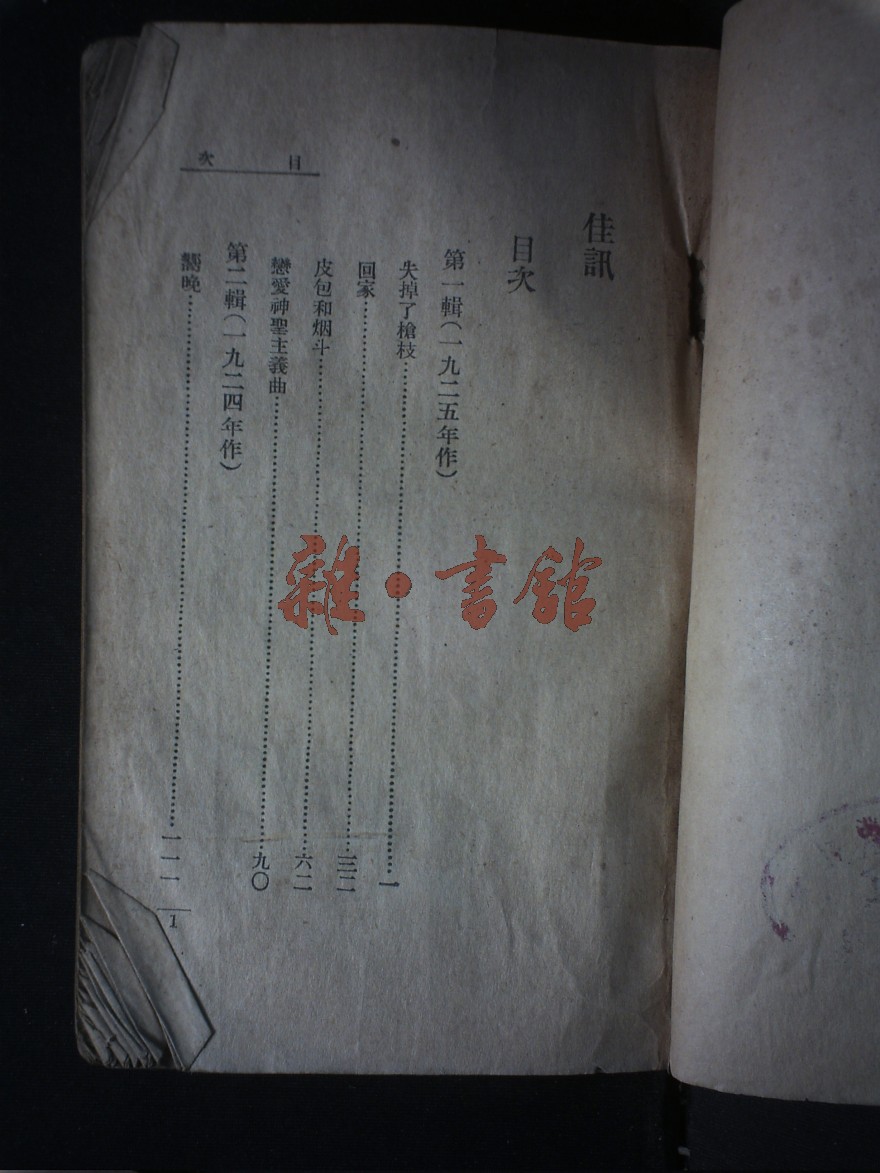 佳訊
目次
第一輯(一九二五年作)
失掉了槍枝……一
回家……三二
皮包和烟斗……六二
戀愛神聖主義曲……九〇
第二輯(一九二四年作)
嚮晚……一一一
目次
1
雜·書館